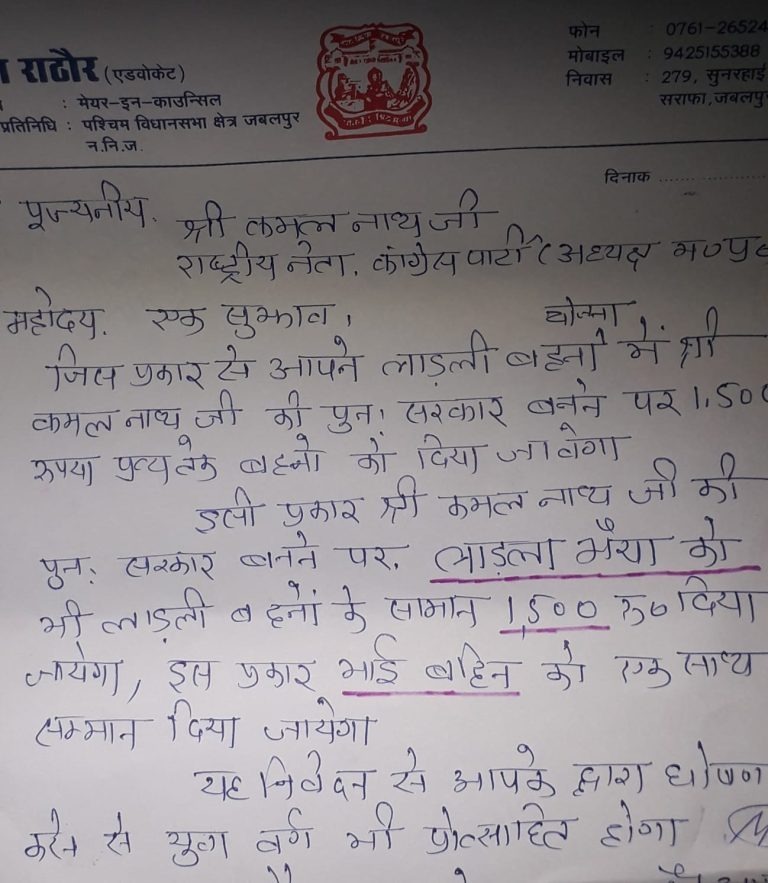 राठौर (एडवोकेट)
: मेयर-इन-काउन्सिल
प्रतिनिधि : पश्चिम विधानसभा क्षेत्र जबलपुर
न.नि.ज.
फोन : 0761-26524
मोबाइल : 9425155388
निवास : 279, सुनरहाई
सराफा, जबलपु
दिनाक ..................
पूज्यनीय.
श्री कमल नाथ जी
राष्ट्रीय नेता. कांग्रेस पार्टी (अध्यक्ष म०प्र०
महोदय. एक सुझाव,
योजना
जिस प्रकार से आपने लाड़ली बहनों में श्री
कमल नाथ जी की पुन: सरकार बनने पर 1,500
रुपया प्रत्येक बहनो को दिया जावेगा
इसी प्रकार श्री कमल नाथ जी की
पुन: सरकार बनने पर. लाड़ला भैया को
भी लाड़ली बहनों के सामान 1,500 रु० दिया
जायेगा, इस प्रकार भाई बहिन को एक साथ
सम्मान दिया जायेगा
यह निवेदन से आपके द्वारा घोषण
करने से युवा वर्ग भी प्रोत्साहित होगा